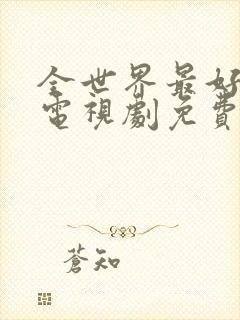 全世界最好
電視劇免費
蒼知